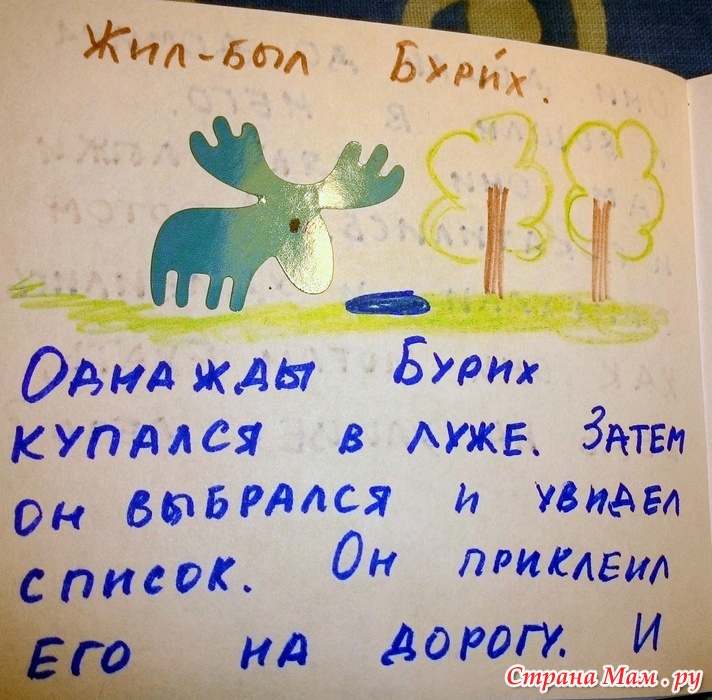 Жил-был Бури́х.
Однажды Бурих
купался в луже. Затем
он выбрался и увидел
список. Он приклеил
его на дорогу. И
Страна Мам.ру